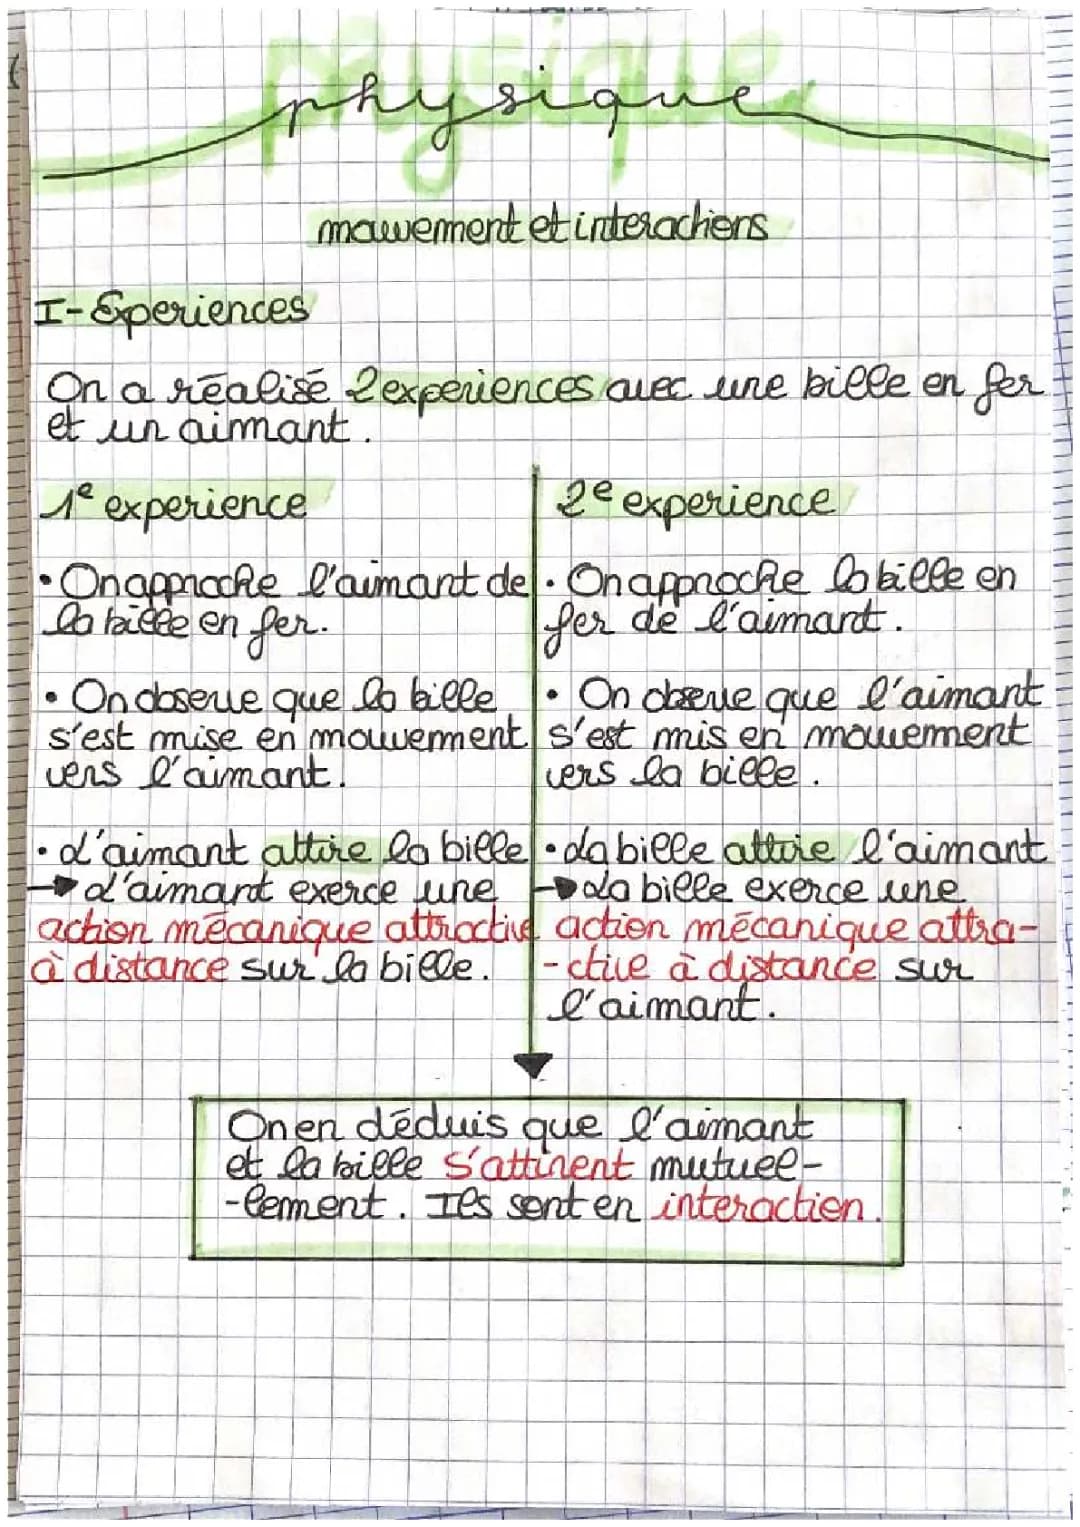 physique
physique
mouvement et interactions
I-Experiences
On a réalisé 2 experiences avec une bille en fer
et un aimant.
1e experience
• On approche l'aimant de
la bille en fer.
• On observe que la bille
s'est mise en mouvement
vers l'aimant.
• L'aimant attire la bille
→ L'aimant exerce une
action mécanique attractive
à distance sur la bille.
2e experience
• On approche la bille en
fer de l'aimant.
• On observe que l'aimant
s'est mis en mouvement
vers la bille.
• La bille attire l'aimant
→ La bille exerce une
action mécanique attra-
-ctive à distance sur
l'aimant.
On en déduis que l'aimant
et la bille s'attirent mutuel-
-lement. Ils sont en interaction.